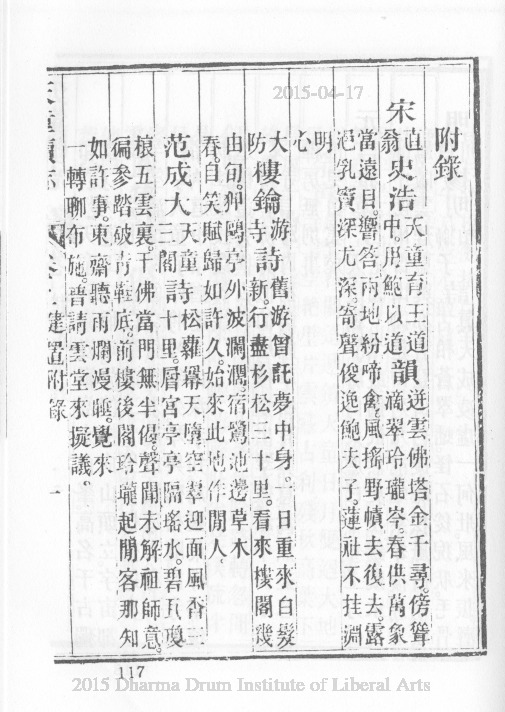 2015-04-17
附錄
宋直翁史浩天童育王道中用鮑以道韻逬雲佛塔金千尋。傍聳
滴翠玲瓏岑。春供萬象
當遠目。響答兩地紛啼禽。風搖野幘去復去。露
浥乳竇深尤深。寄聲俊逸鮑夫子。蓮社不挂淵
明
心
大防樓鑰游寺詩舊游曾託夢中身。日重來白髮
新。行盡杉松三十里。看來樓閣幾
由旬。狎鷗亭外波瀾濶。宿鷺池邊草木
春。自笑賦歸如許久。始來此地作閒人。
范成大天童三閣詩松蘿羃天墮空翠。迎面風香三
十里。層宮亭亭隔瑤水。碧瓦
榱五雲裏。千佛當門無半偈。聲聞未解祖師意。
徧參踏破靑鞋底。前樓後閣玲瓏起。閒客那知
如許事。東齋聽雨爛漫睡。覺來
一轉聊布施。普請雲堂來擬議。
續志 建置附錄 一
117
2015 Dharma Drum Institute of Liberal Arts